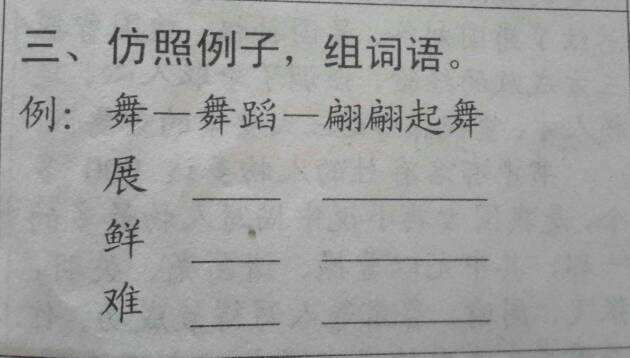 三、仿照例子，组词语。
例：舞—舞蹈—翩翩起舞
展 ______ ______
鲜 ______ ______
难 ______ ______